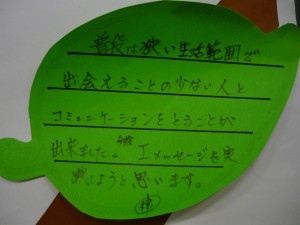 普段は狭い生活範囲で
出会えることの少ない人と
コミュニケーションをとることが
出来ました。今後Iメッセージを実
践しようと思います。